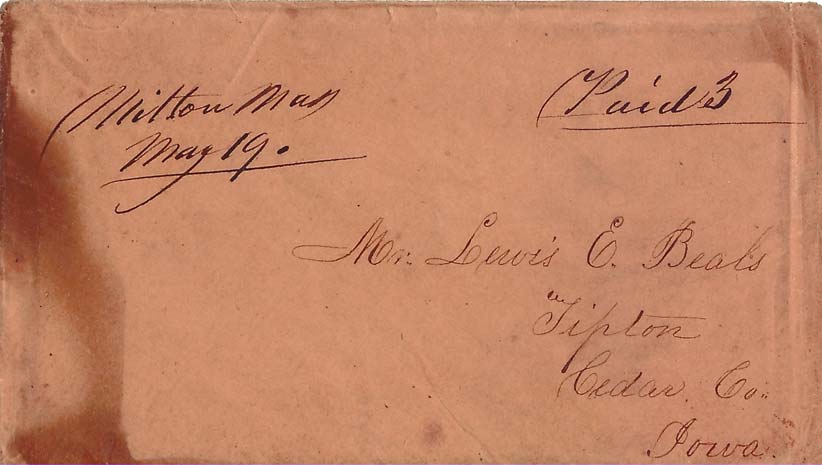 Milton Mass
May 19.
Paid 3
Mr. Lewis E. Beals
Tipton
Cedar. Co.
Iowa.